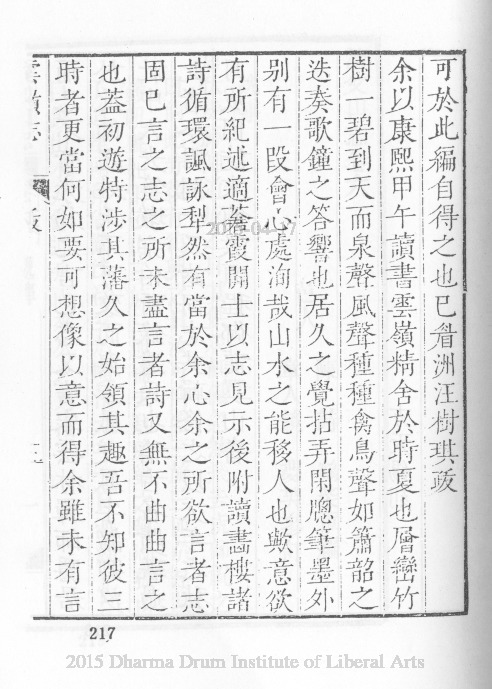 可於此編自得之也已眷洲汪樹琪䟦
余以康熙甲午讀書雲嶺精舍於時夏也層巒竹
樹一碧到天而泉聲風聲種種禽鳥聲如簫韶之
迭奏歌鐘之答響也居久之覺拈弄閑牕筆墨外
别有一段會心處洵哉山水之能移人也歟意欲
有所紀述適蒼霞開士以志見示後附讀畵樓諸
詩循環諷詠犁然有當於余心余之所欲言者志
固巳言之志之所未盡言者詩又無不曲曲言之
也葢初遊特涉其藩久之始領其趣吾不知彼三
時者更當何如要可想像以意而得余雖未有言
217
2015 Dharma Drum Institute of Liberal Arts